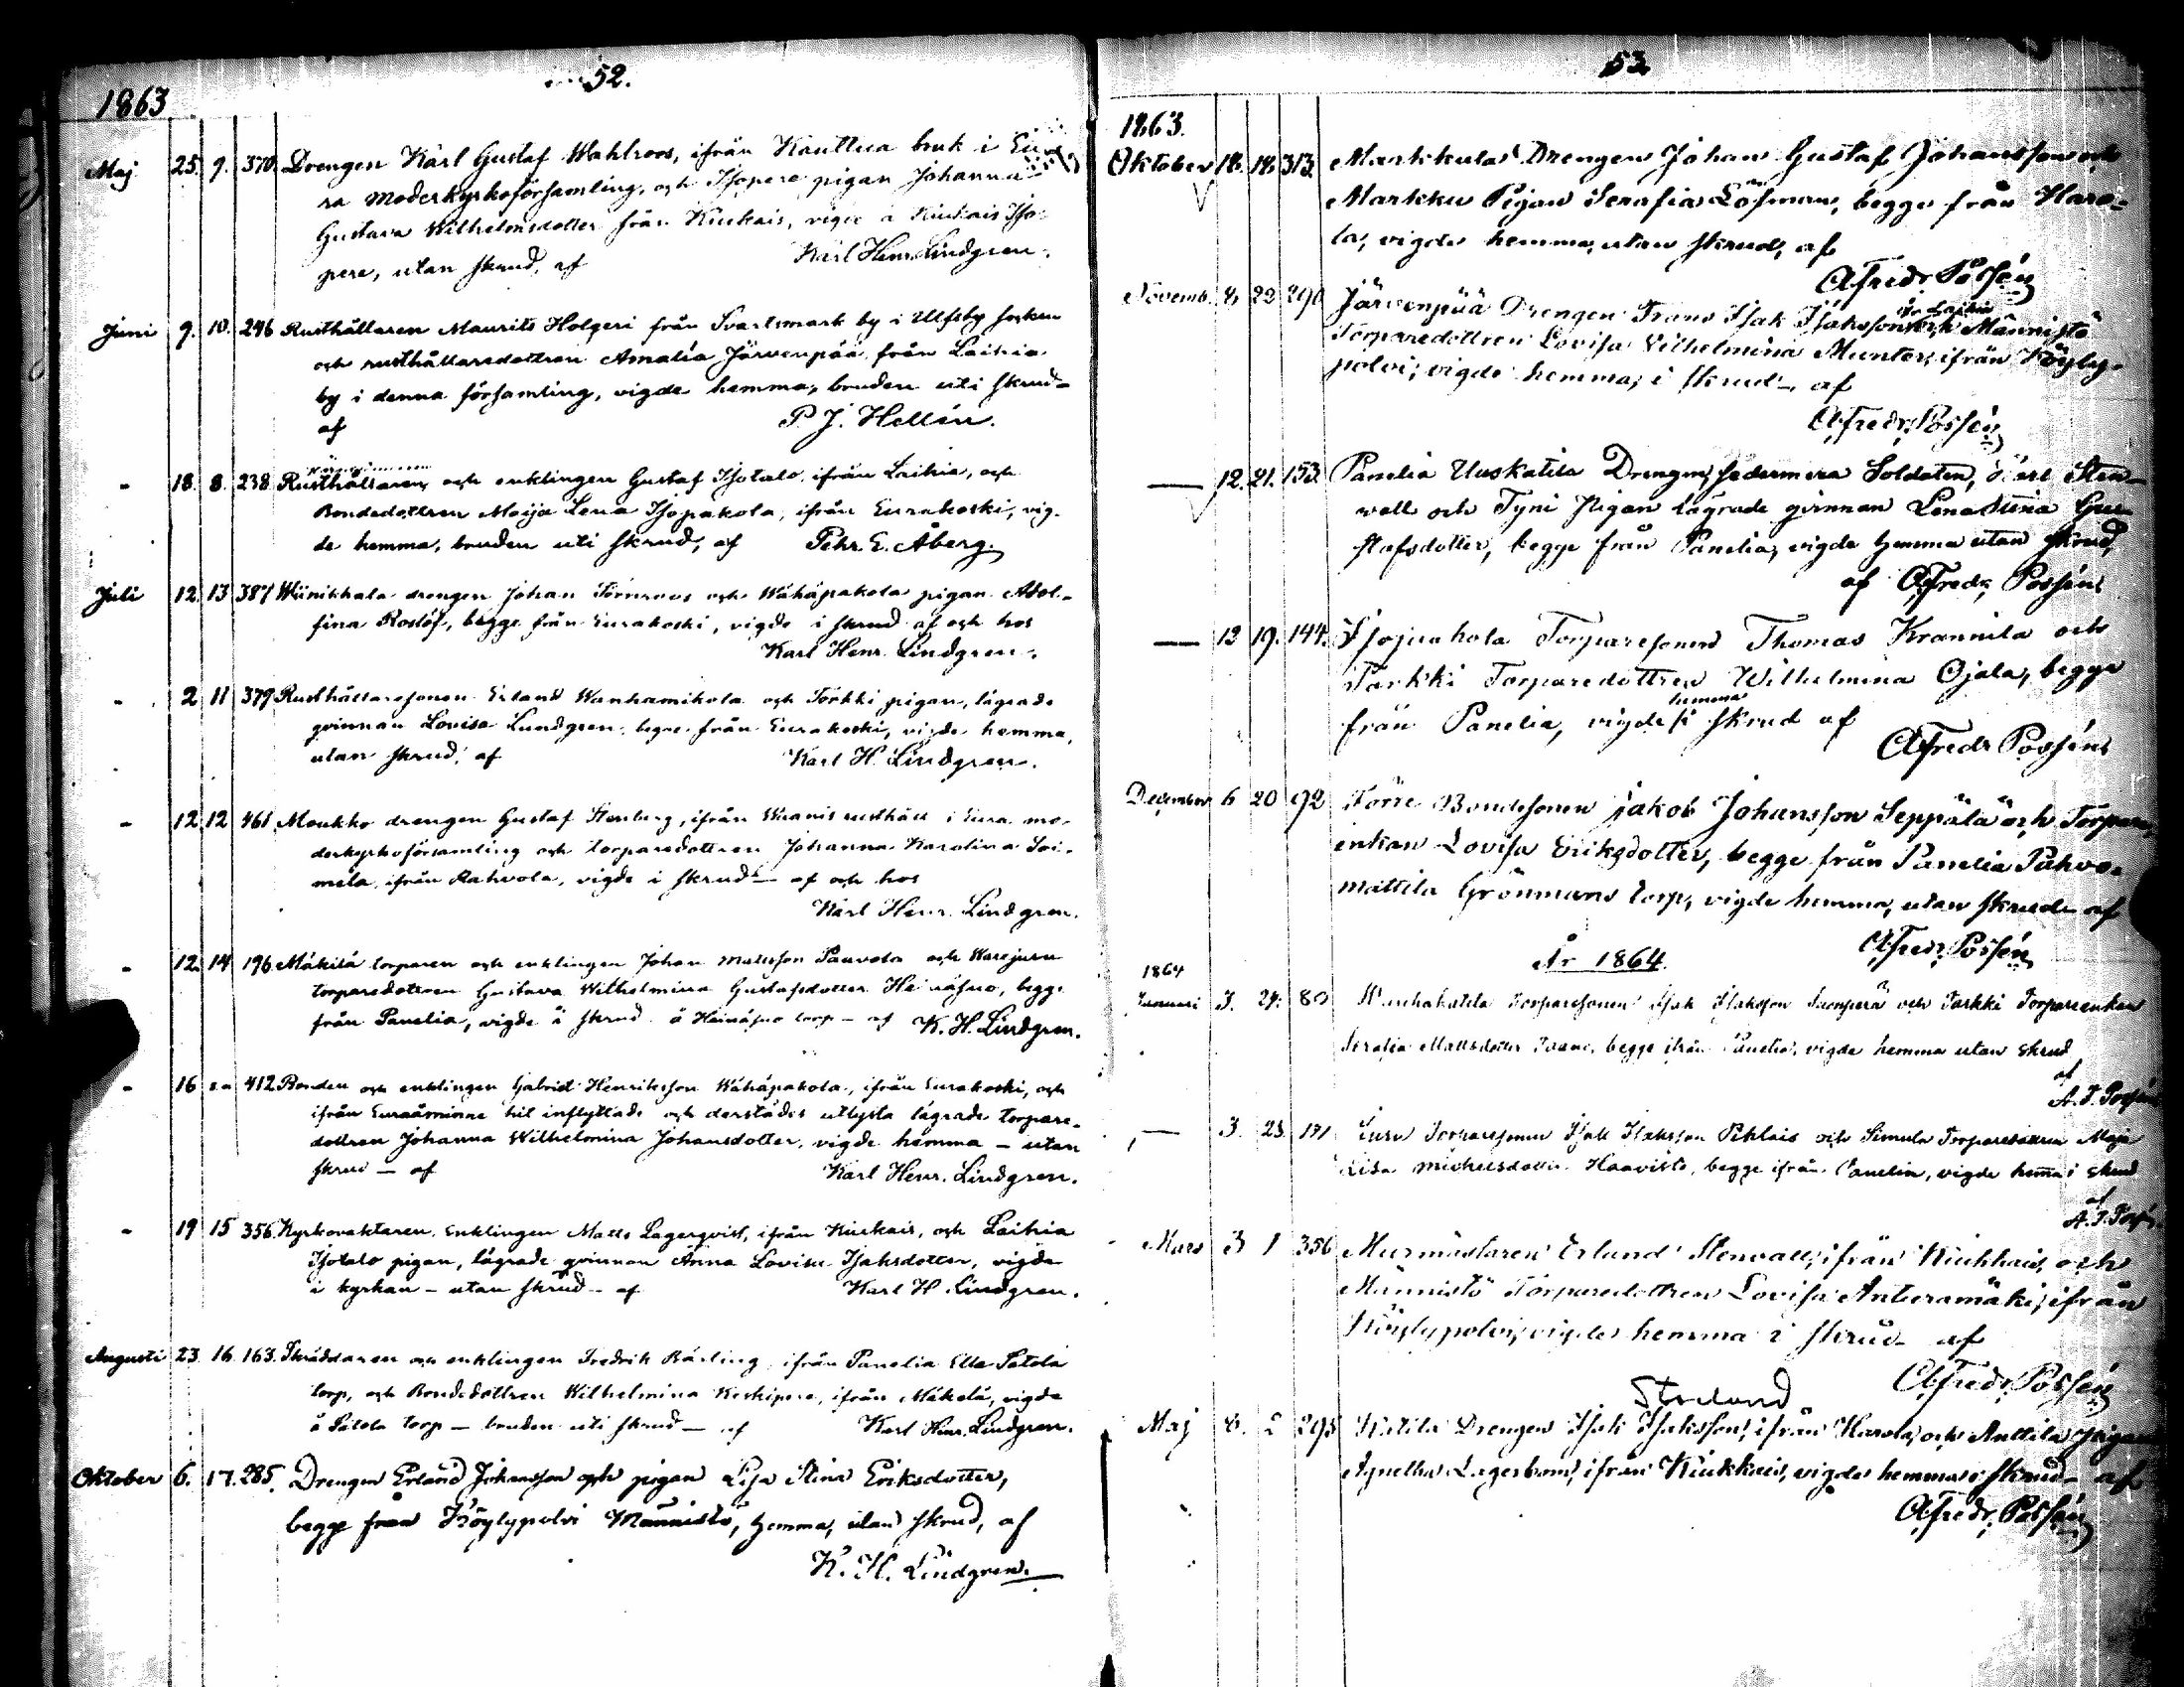 52.
1863
Maj 25. 9. 370. Drengen Karl Gustaf Wahlroos, ifrån Kauttua bruk i Eu
ra moderkyrkoförsamling, och Isopere pigan Johanna
Gustava Wilhelmsdotter från Kiukais, vigde å Kiukais Iso-
pere, utan skrud, af Karl Henr. Lindgren.
Juni 9. 10. 246 Rusthållaren Maurits Holgeri från Svartsmark by i Ulfsby socken
och rusthållaredottren Amalia Järvenpää från Laihia
by i denna församling, vigde hemma, bruden uti skrud_
af P. J. Hellén.
- 18. 8. 238 Rusthållaren och enklingen Gustaf Isotalo, ifrån Laihia, och
Bondedottren Maija Lena Isopakola, ifrån Eurakoski, vig-
de hemma, bruden uti skrud, af Pehr E. Åberg.
Juli 12. 13 387 Wiinikkala drengen Johan Törnroos och Wähäpakola pigan Adol-
fina Roslöf, begge från Eurakoski, vigde i skrud af och hos
Karl Henr. Lindgren.
- 2 11 379 Rusthållaresonen Erland Wanhamikola och Törkki pigan, lägrade
qvinnan Lovisa Lundgren, begge från Eurakoski, vigde hemma,
utan skrud, af Karl H. Lindgren.
- 12 12 461 Moukko drengen Gustaf Stenberg, ifrån rusthåll i Eura mo-
derkyrkoförsamling och torparedottren Johanna Karolina Soi-
mela, ifrån Rahvola, vigde i skrud_ af och hos
Karl Henr. Lindgren.
- 12 14 196 Mäkilä torparen och enklingen Johan Mattsson Paavola och
torparedottren Gustava Wilhelmina Gustafsdotter Heinäsuo, begge
från Panelia, vigde i skrud å Heinäsuo torp - af K. H. Lindgren.
- 16 412 Bonden och enklingen Gabriel Henriksson Wähäpakola, ifrån Eurakoski, och
ifrån Euraåminne hit inflyttade och derstädes utlysta lägrade torpare-
dottren Johanna Wilhelmina Johansdotter, vigde hemma - utan
skrud - af Karl Henr. Lindgren.
- 19 15 356. Kyrkovaktaren, Enklingen Matts Lagerqvist, ifrån Kiukais, och Laihia
Isotalo pigan, lägrade qvinnan Anna Lovisa Isaksdotter, vigde
i kyrkan - utan skrud - af Karl H. Lindgren.
Augusti 23. 16 163. Skräddaren och enklingen Fredrik Bärling, ifrån Panelia Satola
torp, och Bondedottren Wilhelmina Keskipere, ifrån Mäkelä, vigde
å Satola torp - bruden uti skrud - af Karl Henr. Lindgren.
Oktober 6. 17. 285. Drengen Erland Johansson och pigan Lisa Stina Eriksdotter,
begge från Köylypolvi Männistö, hemma, utan skrud, af
K. H. Lindgren.
53
1863.
Oktober 18. 18. 313. Markkula Drengen Johan Gustaf Johansson och
Markku Pigan Serafia Löfman, begge från Haro-
la, vigde hemma, utan skrud, af
A. Fredr. Possén
Novemb. 8. 22 290 Järvenpää Drengen Frans Isak Isaksson ifr. Laihia och Männistö
Torparedottren Lovisa Wilhelmina Munter, ifrån Köyly-
polvi, vigde hemma, i skrud_ af
A. Fredr. Possén
— 12. 21. 153. Panelia Uuskatila Drengen, sedermera Soldaten, Karl Sten-
vall och Tyni Pigan lägrade qvinnan Lena Stina Gu-
stafsdotter, begge från Panelia, vigde hemma utan skrud,
af A. Fredr. Possén
— 13 19. 144. Isopakola Torparesonen Thomas Krannila och
Tarkki Torparedottren Wilhelmina Ojala, begge
från Panelia, vigde hemma i skrud af
A. Fredr. Possén
December 6 20 92 Törri Bondesonen Jakob Johansson Seppälä och Torpare-
enkan Lovisa Eriksdotter, begge från Panelia Pahva-
mattila Grönmans torp, vigde hemma, utan skrud af
A. Fredr. Possén
År 1864.
1864
Januari 3. 24. 80 Torparesonen Isak Isaksson och Tarkki Torpareenkan
Serafia Mattsdotter begge ifrån Panelia, vigde hemma utan skrud
af
A. F. Possén
— 3. 23. Torparesonen Isak Isaksson Pihlais och Simula Torparedottren Maja
Lisa Michelsdotter Haavisto, begge ifrån Panelia, vigde hemma i skrud
af
A. F. Possén
Mars 3 1 356 Murmästaren Erland Stenvall, ifrån Kiukkais, och
Männistö Torparedottren Lovisa Anteramäki, ifrån
Köylypolvi, vigde hemma i skrud af
A. Fredr. Possén
Strelund
Maj 8. 2 295 Katila Drengen Isak Isaksson, ifrån Harola, och Anttila pigan
Agnetha Lagerbom, ifrån Kiukkais, vigde hemma i skrud - af
A. Fredr. Possén